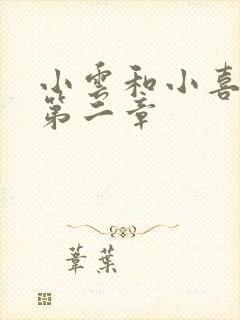 小雲和小喜
第二章
葦葉